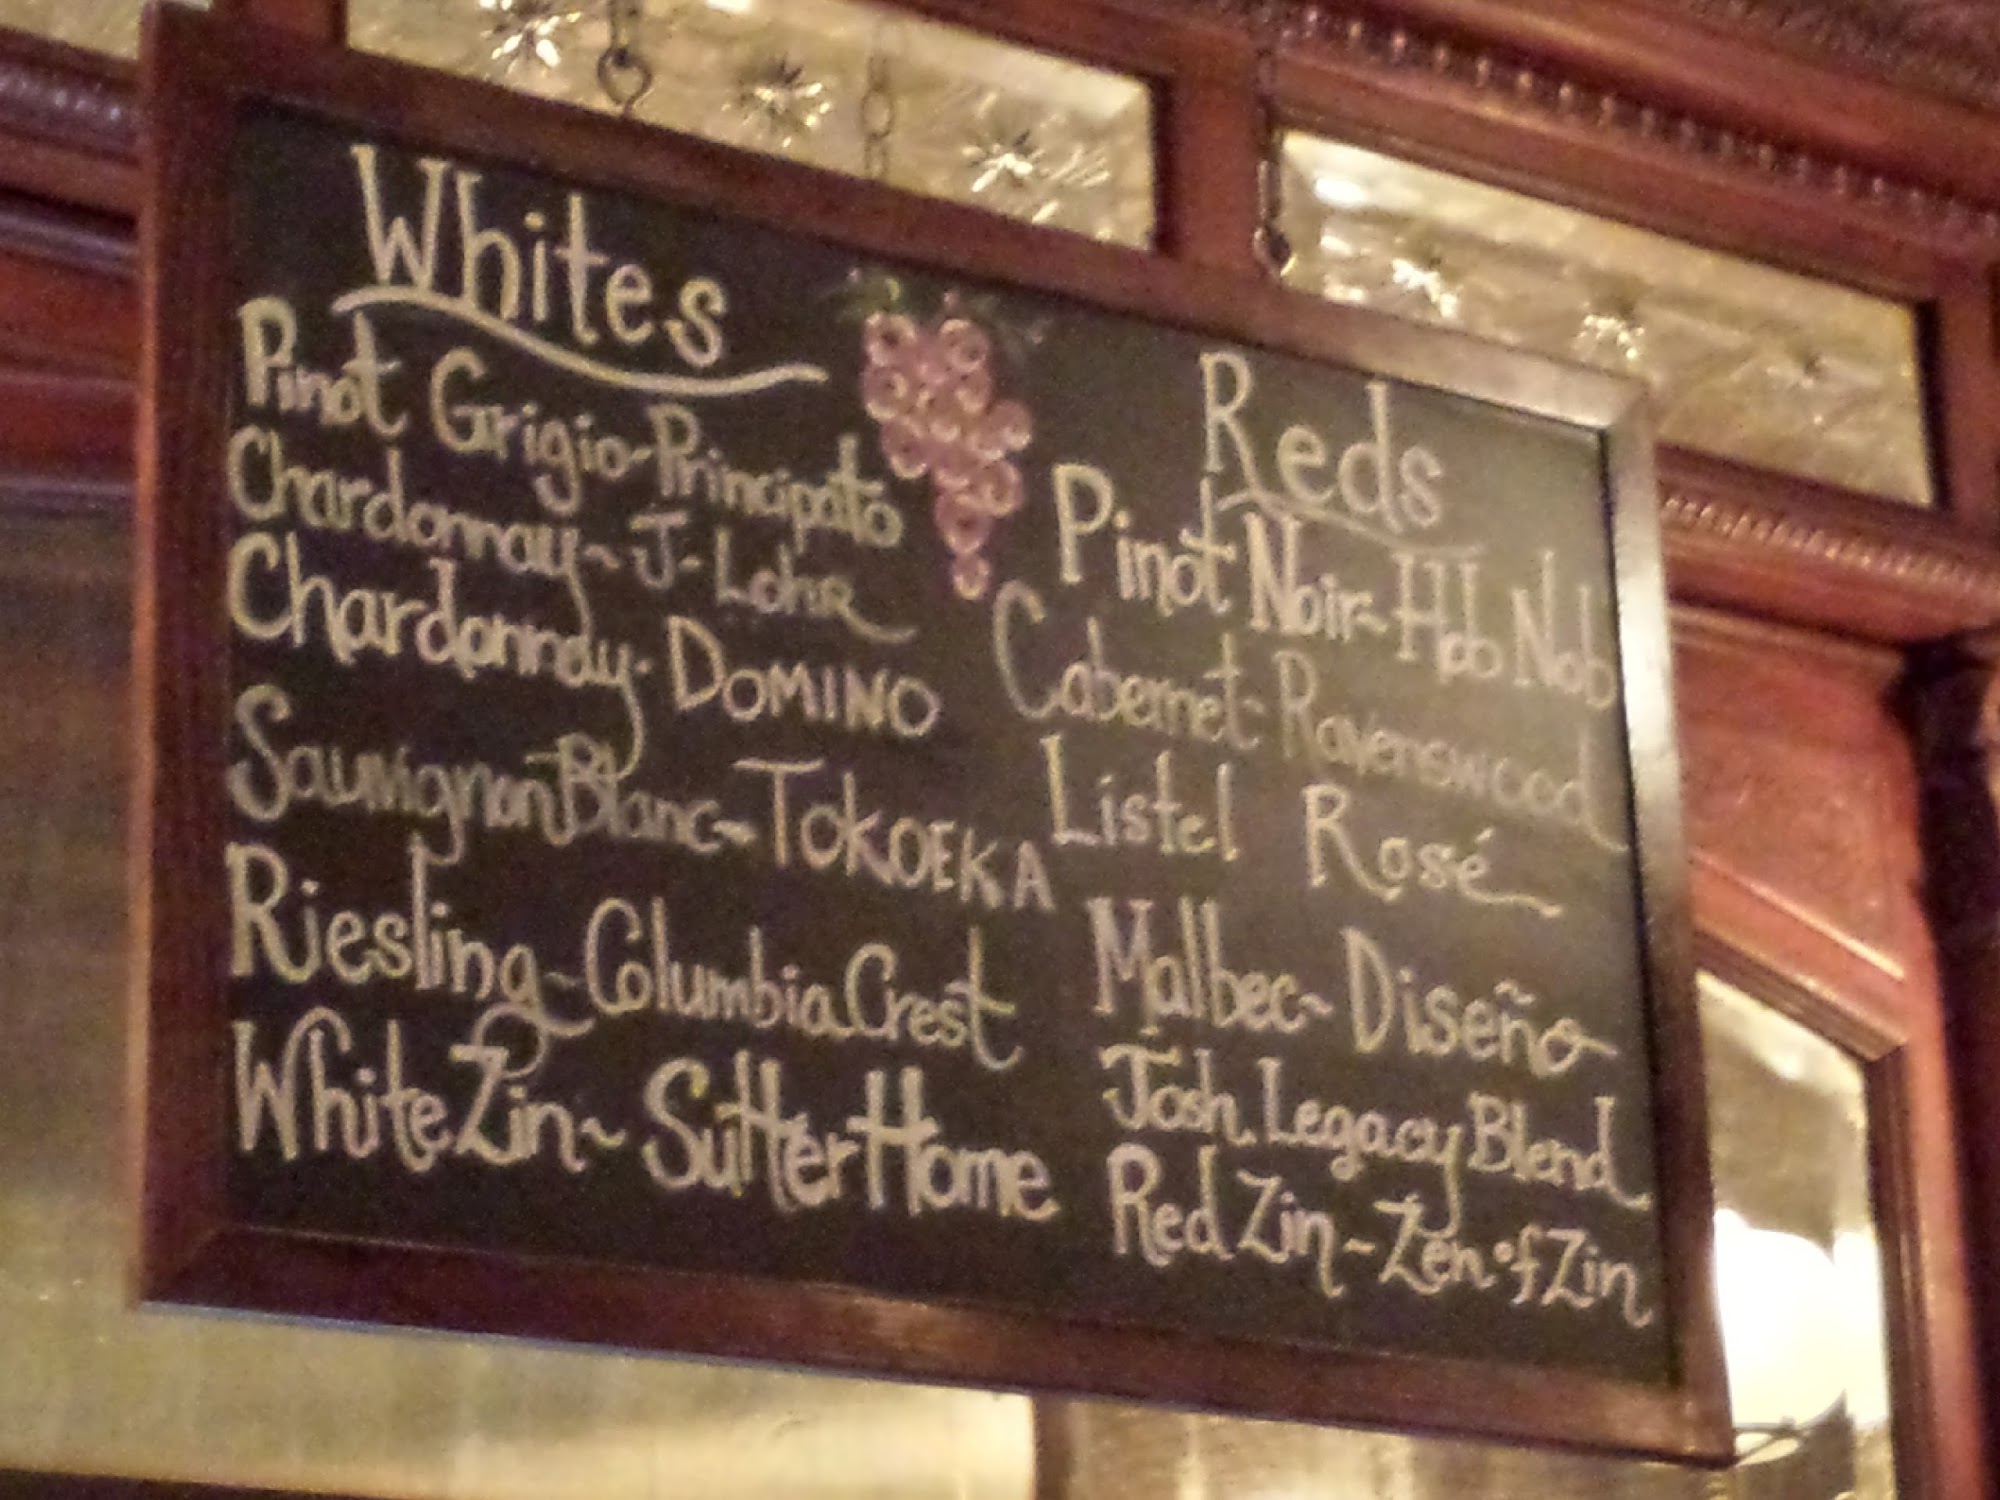 Whites
Pinot Grigio-Principato
Chardonnay~J-Lohr
Chardonnay-DOMINO
Sauvignon Blanc~TOKOEKA
Riesling~Columbia Crest
White Zin~Sutter Home
Reds
Pinot Noir~Hob Nob
Cabernet-Ravenswood
Listel Rosé
Malbec~Diseño
Josh Legacy Blend
Red Zin~Zen of Zin